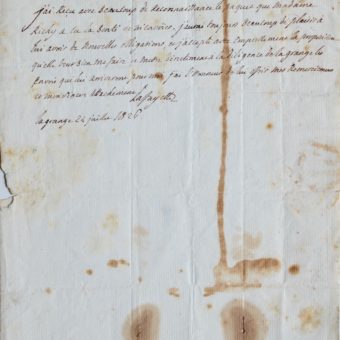 j'ai Recu avec beaucoup de Reconnaissance le paquet que Madame
Richy a eu la bonté m'envoier. j'aurai toujours beaucoup de plaisir à
lui avoir de nouvelles obligations et j'accepte avec Empressement la proposition
qu'elle veut bien me faire mettre à la diligence de la grange le
Envoi qui lui pour moi. j'ai l'honneur de lui offrir mes Remerciemens
et mon attachement
Lafayette
lagrange 22 juillet 1826